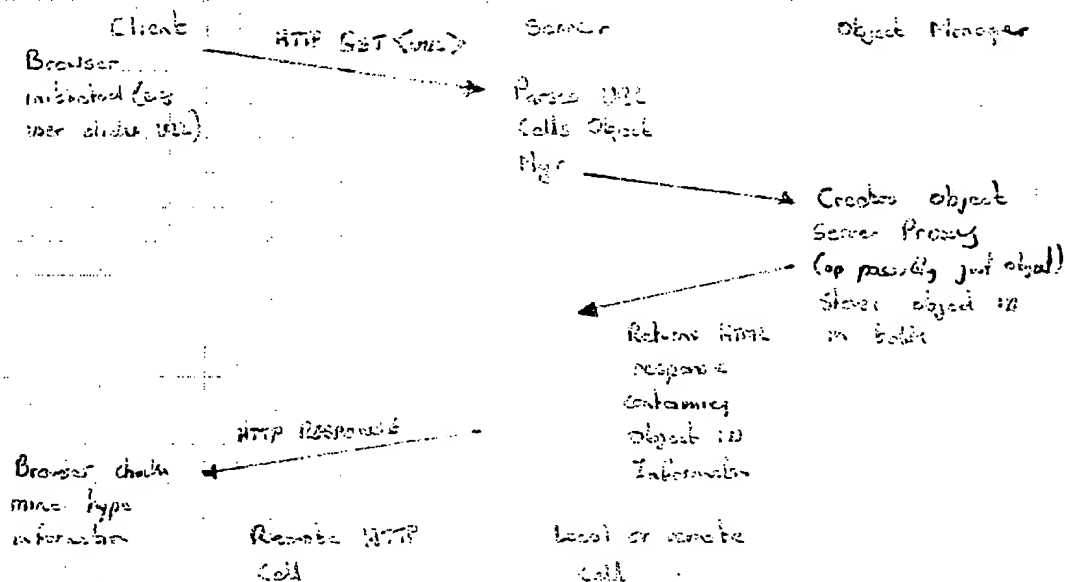 Client
HTTP GET <URL>
Server
Object Manager
Browser
initiated (eg
user clicks URL)
Parses URL
Calls Object
Mgr
Creates object
Server Proxy
(or possibly just object)
Stores object ID
in table
Returns HTML
response
containing
object ID
Information
HTTP RESPONSE
Browser checks
mime type
information
Remote HTTP
Call
Local or remote
Call